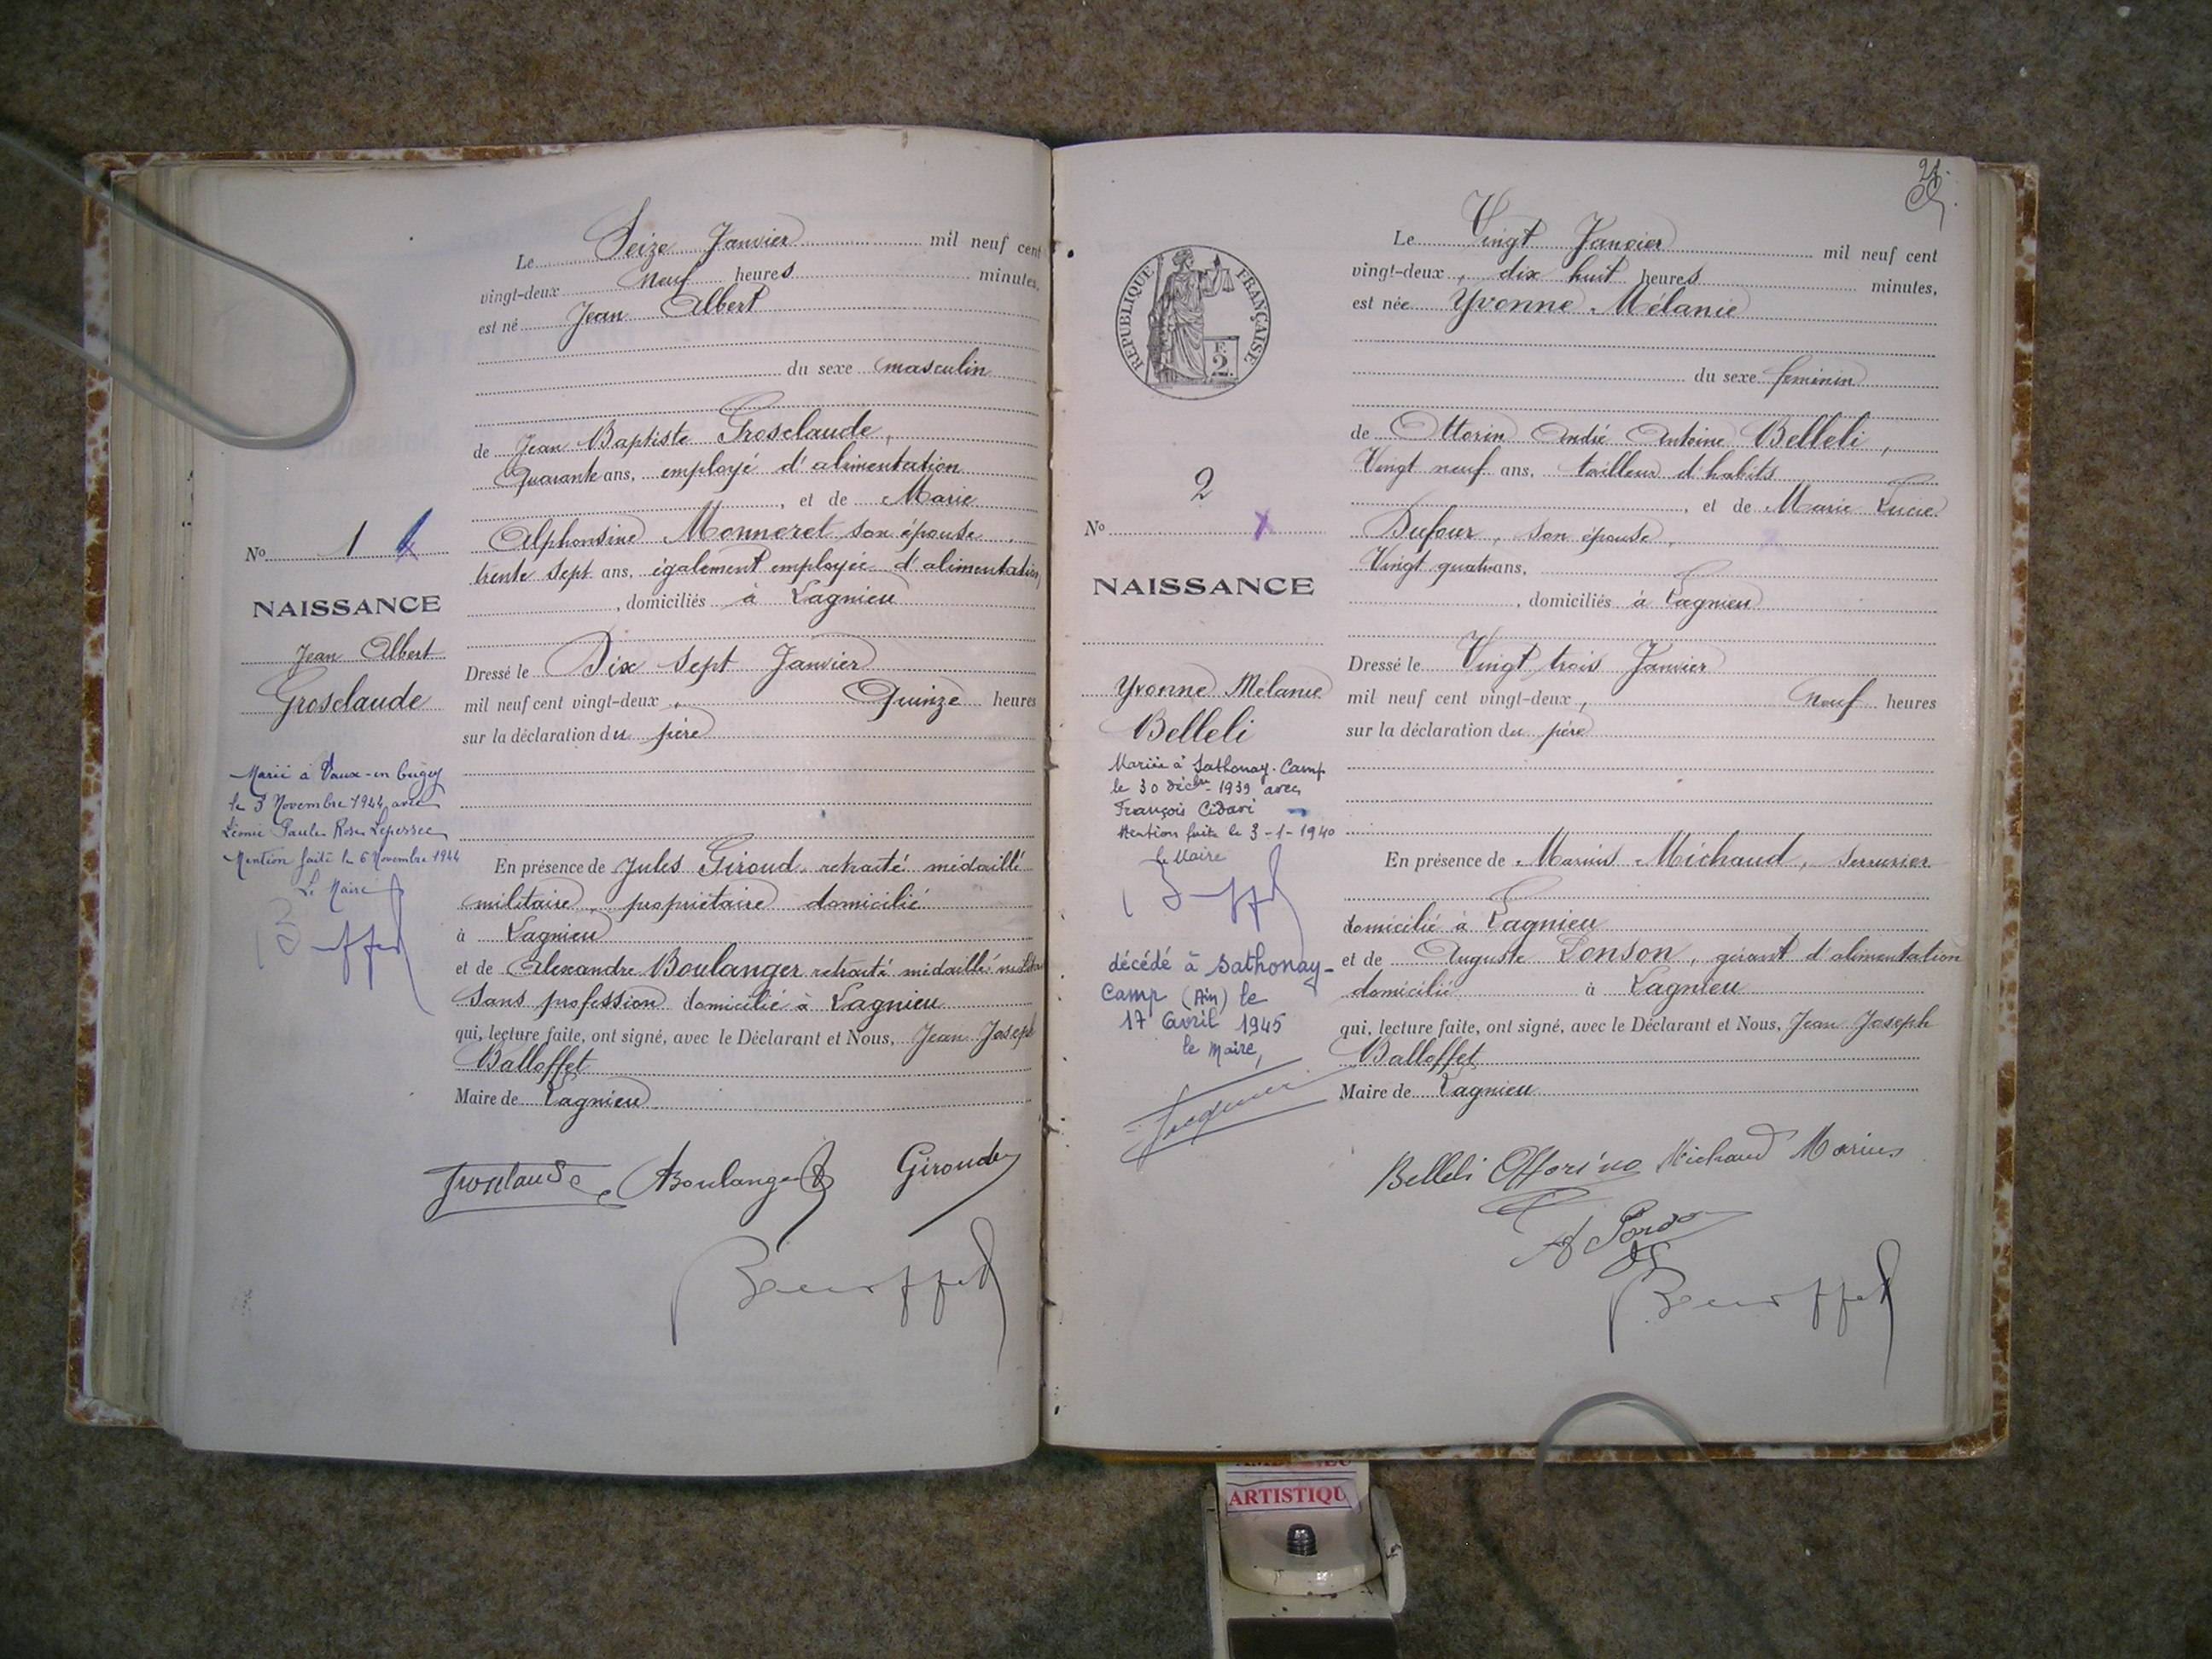 Le Seize Janvier mil neuf cent
vingt-deux neuf heures minutes,
est né Jean Albert
du sexe masculin
de Jean Baptiste Grosclaude,
Quarante ans, employé d'alimentation
, et de Marie
Alphonsine Monneret son épouse,
trente sept ans, également employée d'alimentation
, domiciliés à Lagnieu
Dressé le Dix sept Janvier
mil neuf cent vingt-deux, Quinze heures
sur la déclaration du père
En présence de Jules Giroud retraité médaillé
militaire, propriétaire domicilié
à Lagnieu
et de Alexandre Boulanger retraité médaillé militaire
Sans profession domicilié à Lagnieu
qui, lecture faite, ont signé, avec le Déclarant et Nous, Jean Joseph
Balloffet
Maire de Lagnieu
Grosclaude Boulanger Giroud
No 1
NAISSANCE
Jean Albert
Grosclaude
Marié à Vaux-en Bugey
le 3 Novembre 1944 avec
Léonie Paule Rose Lepessec
Mention faite le 6 Novembre 1944
Le Maire
21.
Le Vingt Janvier mil neuf cent
vingt-deux, dix huit heures minutes,
est née Yvonne Mélanie
du sexe féminin
de Ottorin André Antoine Belleli,
Vingt neuf ans, tailleur d'habits
, et de Marie Lucie
Dufour, son épouse,
Vingt quatre ans,
, domiciliés à Lagnieu
Dressé le Vingt trois Janvier
mil neuf cent vingt-deux, neuf heures
sur la déclaration du père
En présence de Marius Michaud, serrurier
domicilié à Lagnieu
et de Auguste Ponson, gérant d'alimentation
domicilié à Lagnieu
qui, lecture faite, ont signé, avec le Déclarant et Nous, Jean Joseph
Balloffet
Maire de Lagnieu
Belleli Ottorino Michaud Marius
REPUBLIQUE FRANÇAISE
F. 2.
2
No
NAISSANCE
Yvonne Mélanie
Belleli
Mariée à Sathonay-Camp
le 30 décbre 1939 avec
François Cidavi
Mention faite le 3-1-1940
Le Maire
décédé à Sathonay-
Camp (Ain) le
17 avril 1945
le Maire,
ARTISTIQU